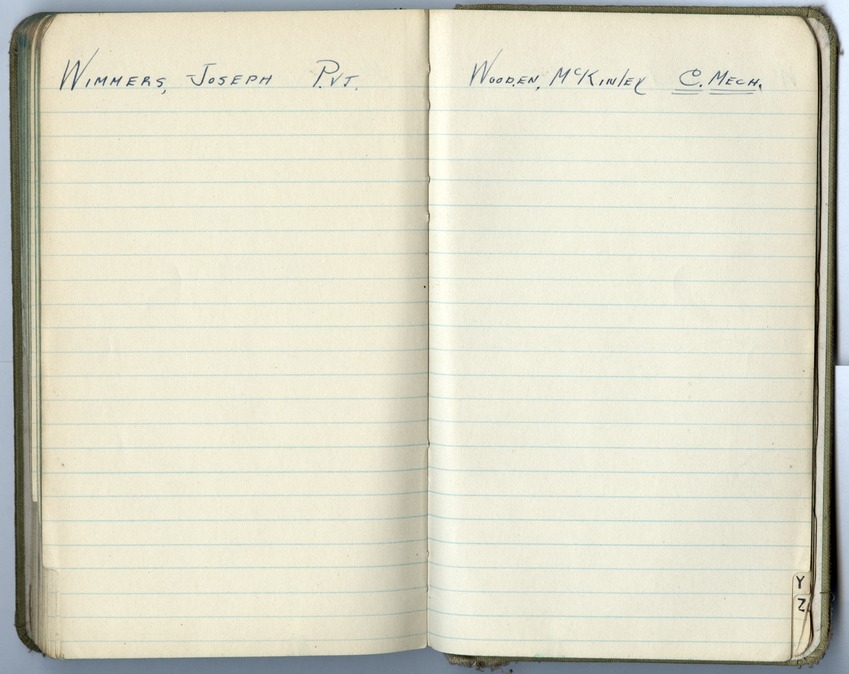 Wimmers, Joseph Pvt.
Wooden, McKinley C. Mech.
Y
Z